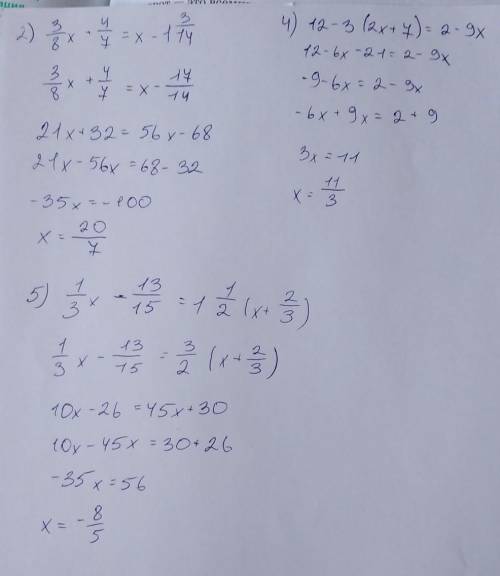 2) 3/8 x + 4/7 = x - 1 3/14
3/8 x + 4/7 = x - 17/14
21x + 32 = 56x - 68
21x - 56x = 68 - 32
-35x = -100
x = 20/7
4) 12 - 3 (2x + 7) = 2 - 9x
12 - 6x - 21 = 2 - 9x
-9 - 6x = 2 - 9x
-6x + 9x = 2 + 9
3x = 11
x = 11/3
5) 1/3 x - 13/15 = 1 1/2 (x + 2/3)
1/3 x - 13/15 = 3/2 (x + 2/3)
10x - 26 = 45x + 30
10x - 45x = 30 + 26
-35x = 56
x = - 8/5